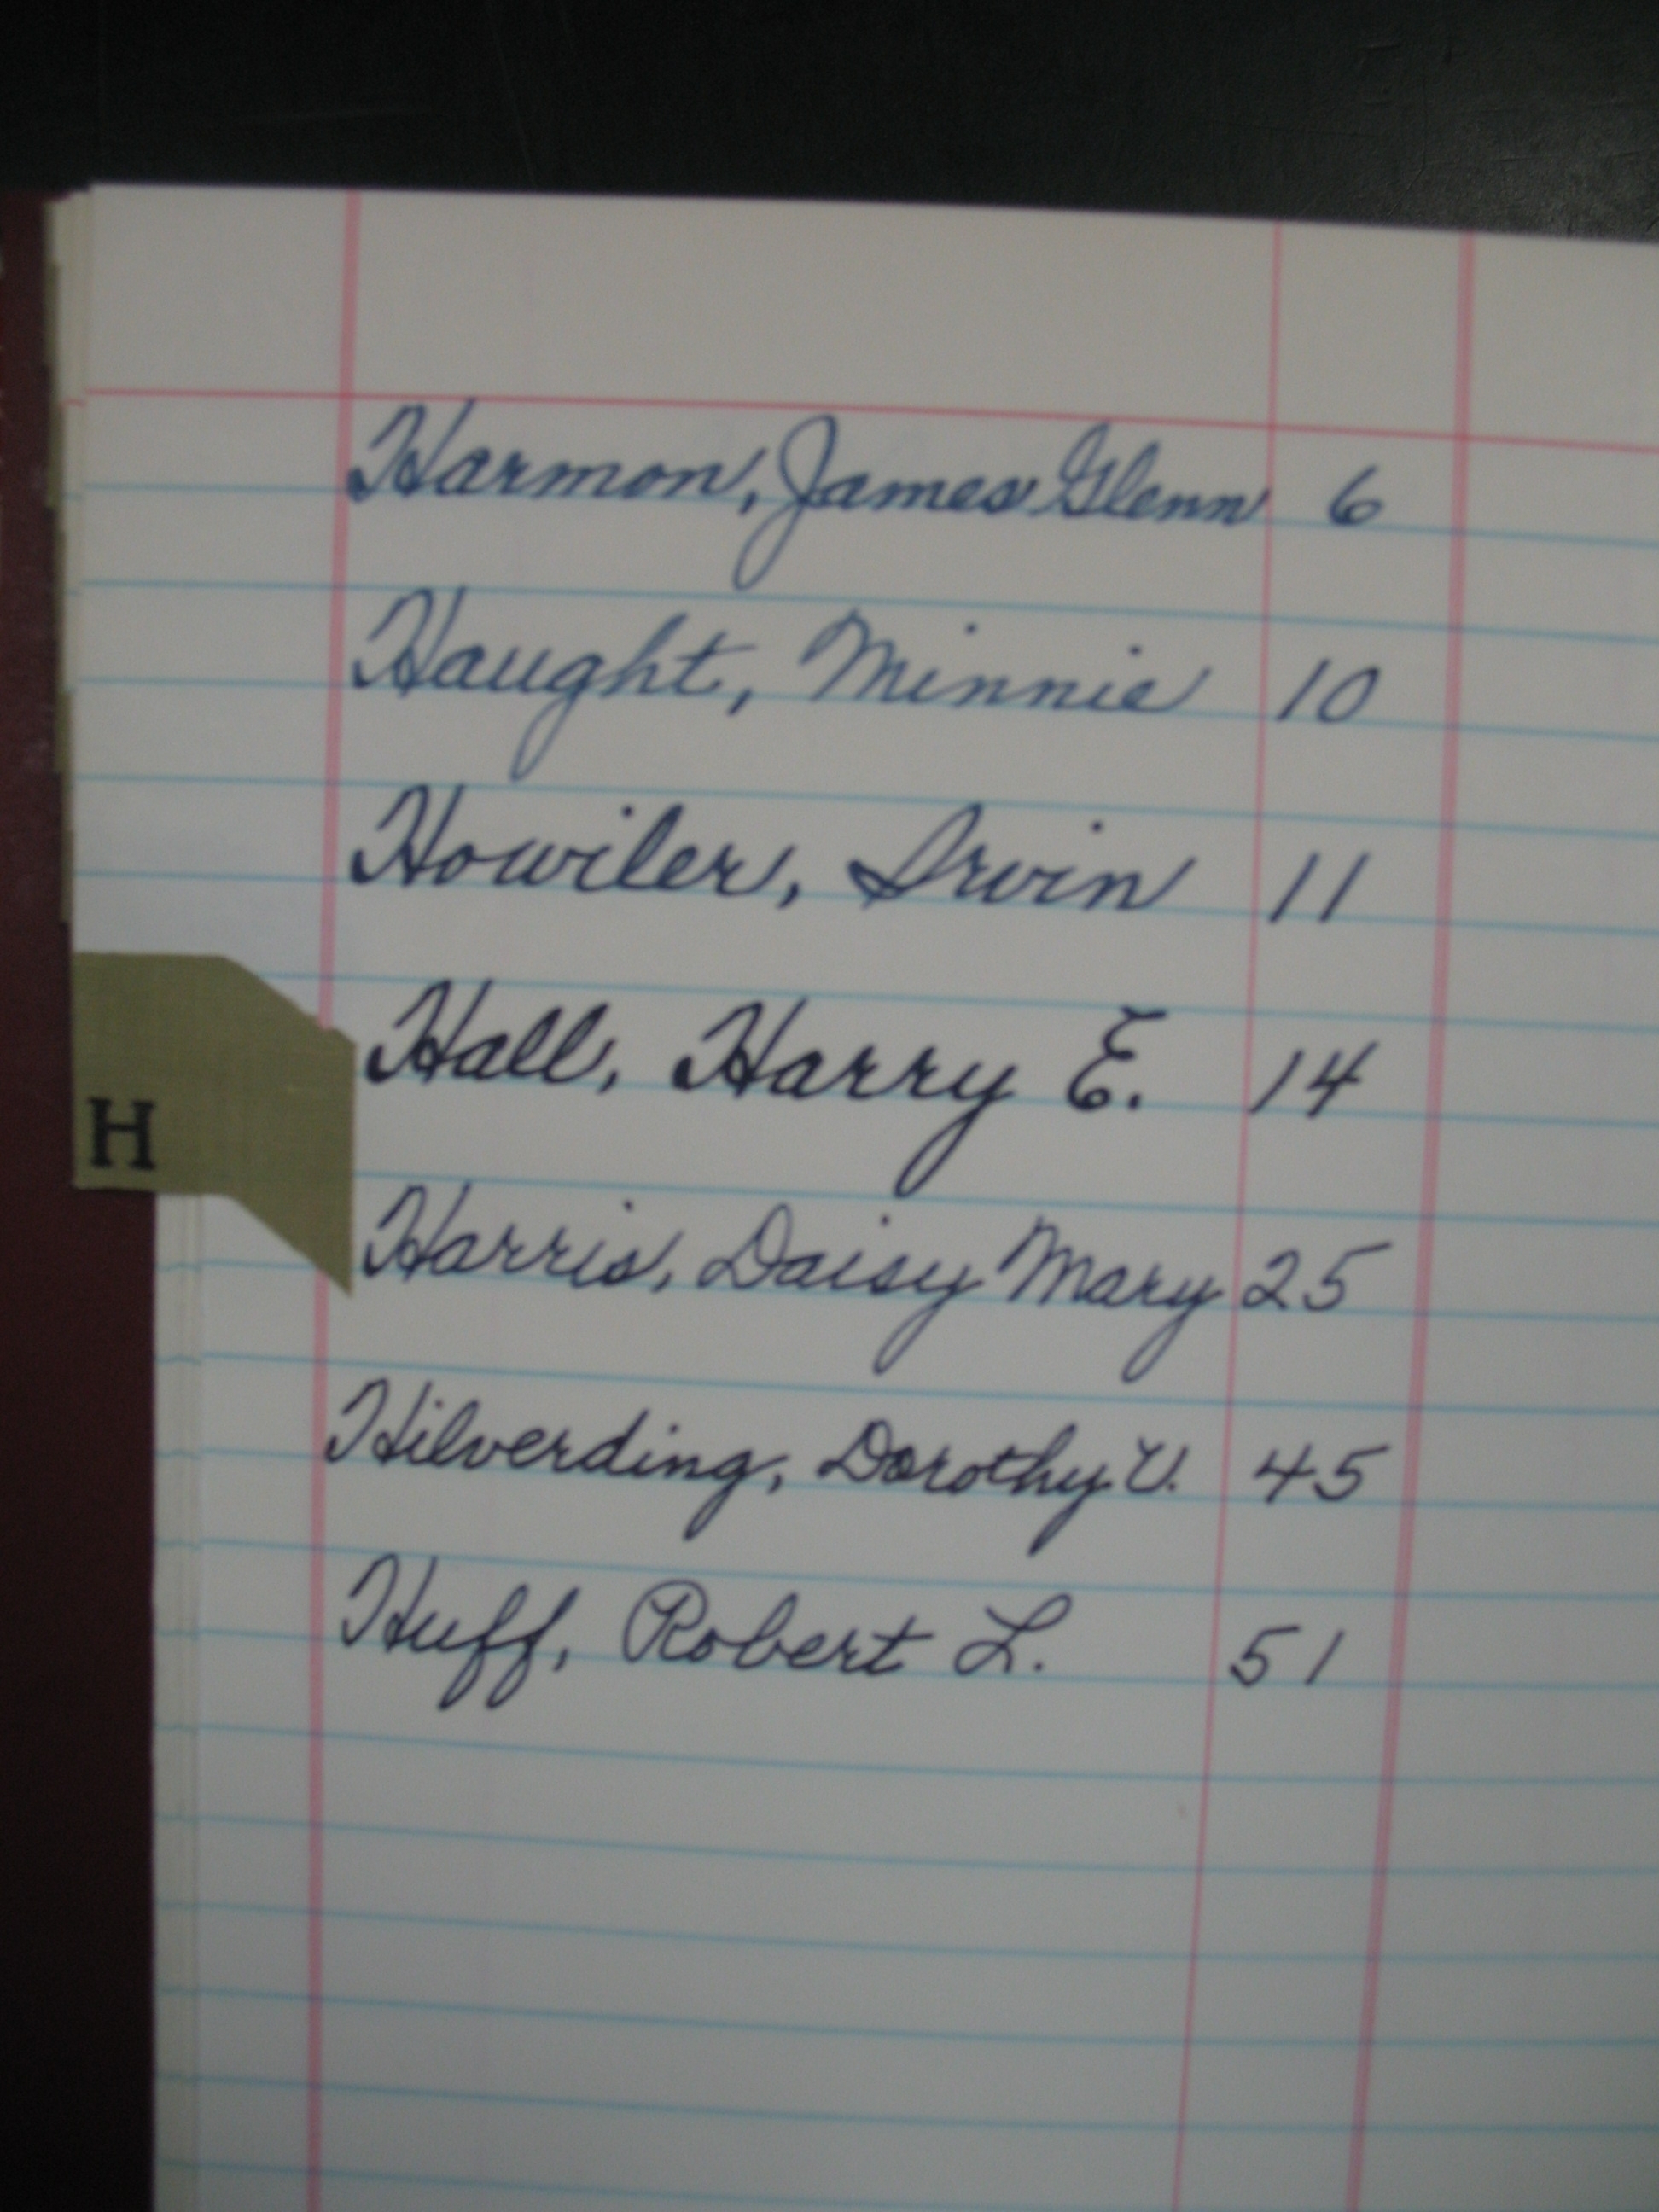 Harmon, James Glenn 6
Haught, Minnie 10
Howiler, Irvin 11
Hall, Harry E. 14
H
Harris, Daisy Mary 25
Hilverding, Dorothy V. 45
Huff, Robert L. 51